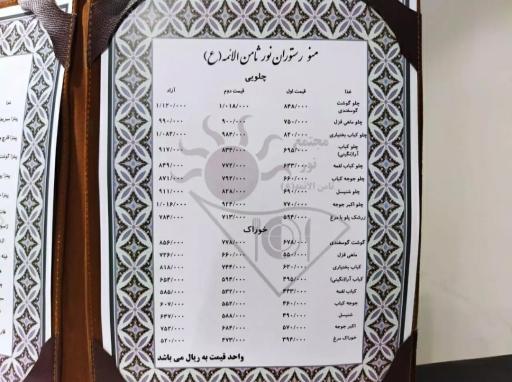 منو رستوران نور ثامن الائمه (ع)
چلویی
غذا قیمت اول قیمت دوم آزاد
چلو گوشت گوسفندی ۸۴۸/۰۰۰ ۱/۰۱۸/۰۰۰ ۱/۱۲۰/۰۰۰
چلو ماهی قزل ۷۵۰/۰۰۰ ۹۰۰/۰۰۰ ۹۹۰/۰۰۰
چلو کباب بختیاری ۸۲۰/۰۰۰ ۹۸۴/۰۰۰ ۱/۰۸۲/۰۰۰
چلو کباب آرا(نگینی) ۶۹۵/۰۰۰ ۸۳۴/۰۰۰ ۹۱۷/۰۰۰
چلو کباب لقمه ۶۴۳/۰۰۰ ۷۷۲/۰۰۰ ۸۴۹/۰۰۰
چلو جوجه کباب ۶۶۰/۰۰۰ ۷۹۲/۰۰۰ ۸۷۱/۰۰۰
چلو شنیسل ۶۹۰/۰۰۰ ۸۲۸/۰۰۰ ۹۱۱/۰۰۰
چلو اکبر جوجه ۷۷۰/۰۰۰ ۹۲۴/۰۰۰ ۱/۰۱۶/۰۰۰
زرشک پلو با مرغ ۵۹۴/۰۰۰ ۷۱۳/۰۰۰ ۷۸۴/۰۰۰
خوراک
گوشت گوسفندی ۶۷۸/۰۰۰ ۷۷۸/۰۰۰ ۸۵۶/۰۰۰
ماهی قزل ۵۵۰/۰۰۰ ۶۶۰/۰۰۰ ۷۲۶/۰۰۰
کباب بختیاری ۶۲۰/۰۰۰ ۷۴۴/۰۰۰ ۸۱۸/۰۰۰
کباب آرا(نگینی) ۴۹۵/۰۰۰ ۵۹۴/۰۰۰ ۶۵۴/۰۰۰
کباب لقمه ۴۴۳/۰۰۰ ۵۳۲/۰۰۰ ۵۸۵/۰۰۰
جوجه کباب ۴۶۰/۰۰۰ ۵۵۲/۰۰۰ ۶۰۷/۰۰۰
شنیسل ۴۹۰/۰۰۰ ۵۸۸/۰۰۰ ۶۴۷/۰۰۰
اکبر جوجه ۵۷۰/۰۰۰ ۶۸۴/۰۰۰ ۷۵۲/۰۰۰
خوراک مرغ ۳۹۴/۰۰۰ ۴۷۳/۰۰۰ ۵۲۰/۰۰۰
واحد قیمت به ریال می باشد
مجتمع
نور
ثامن الائمه(ع)
غذا